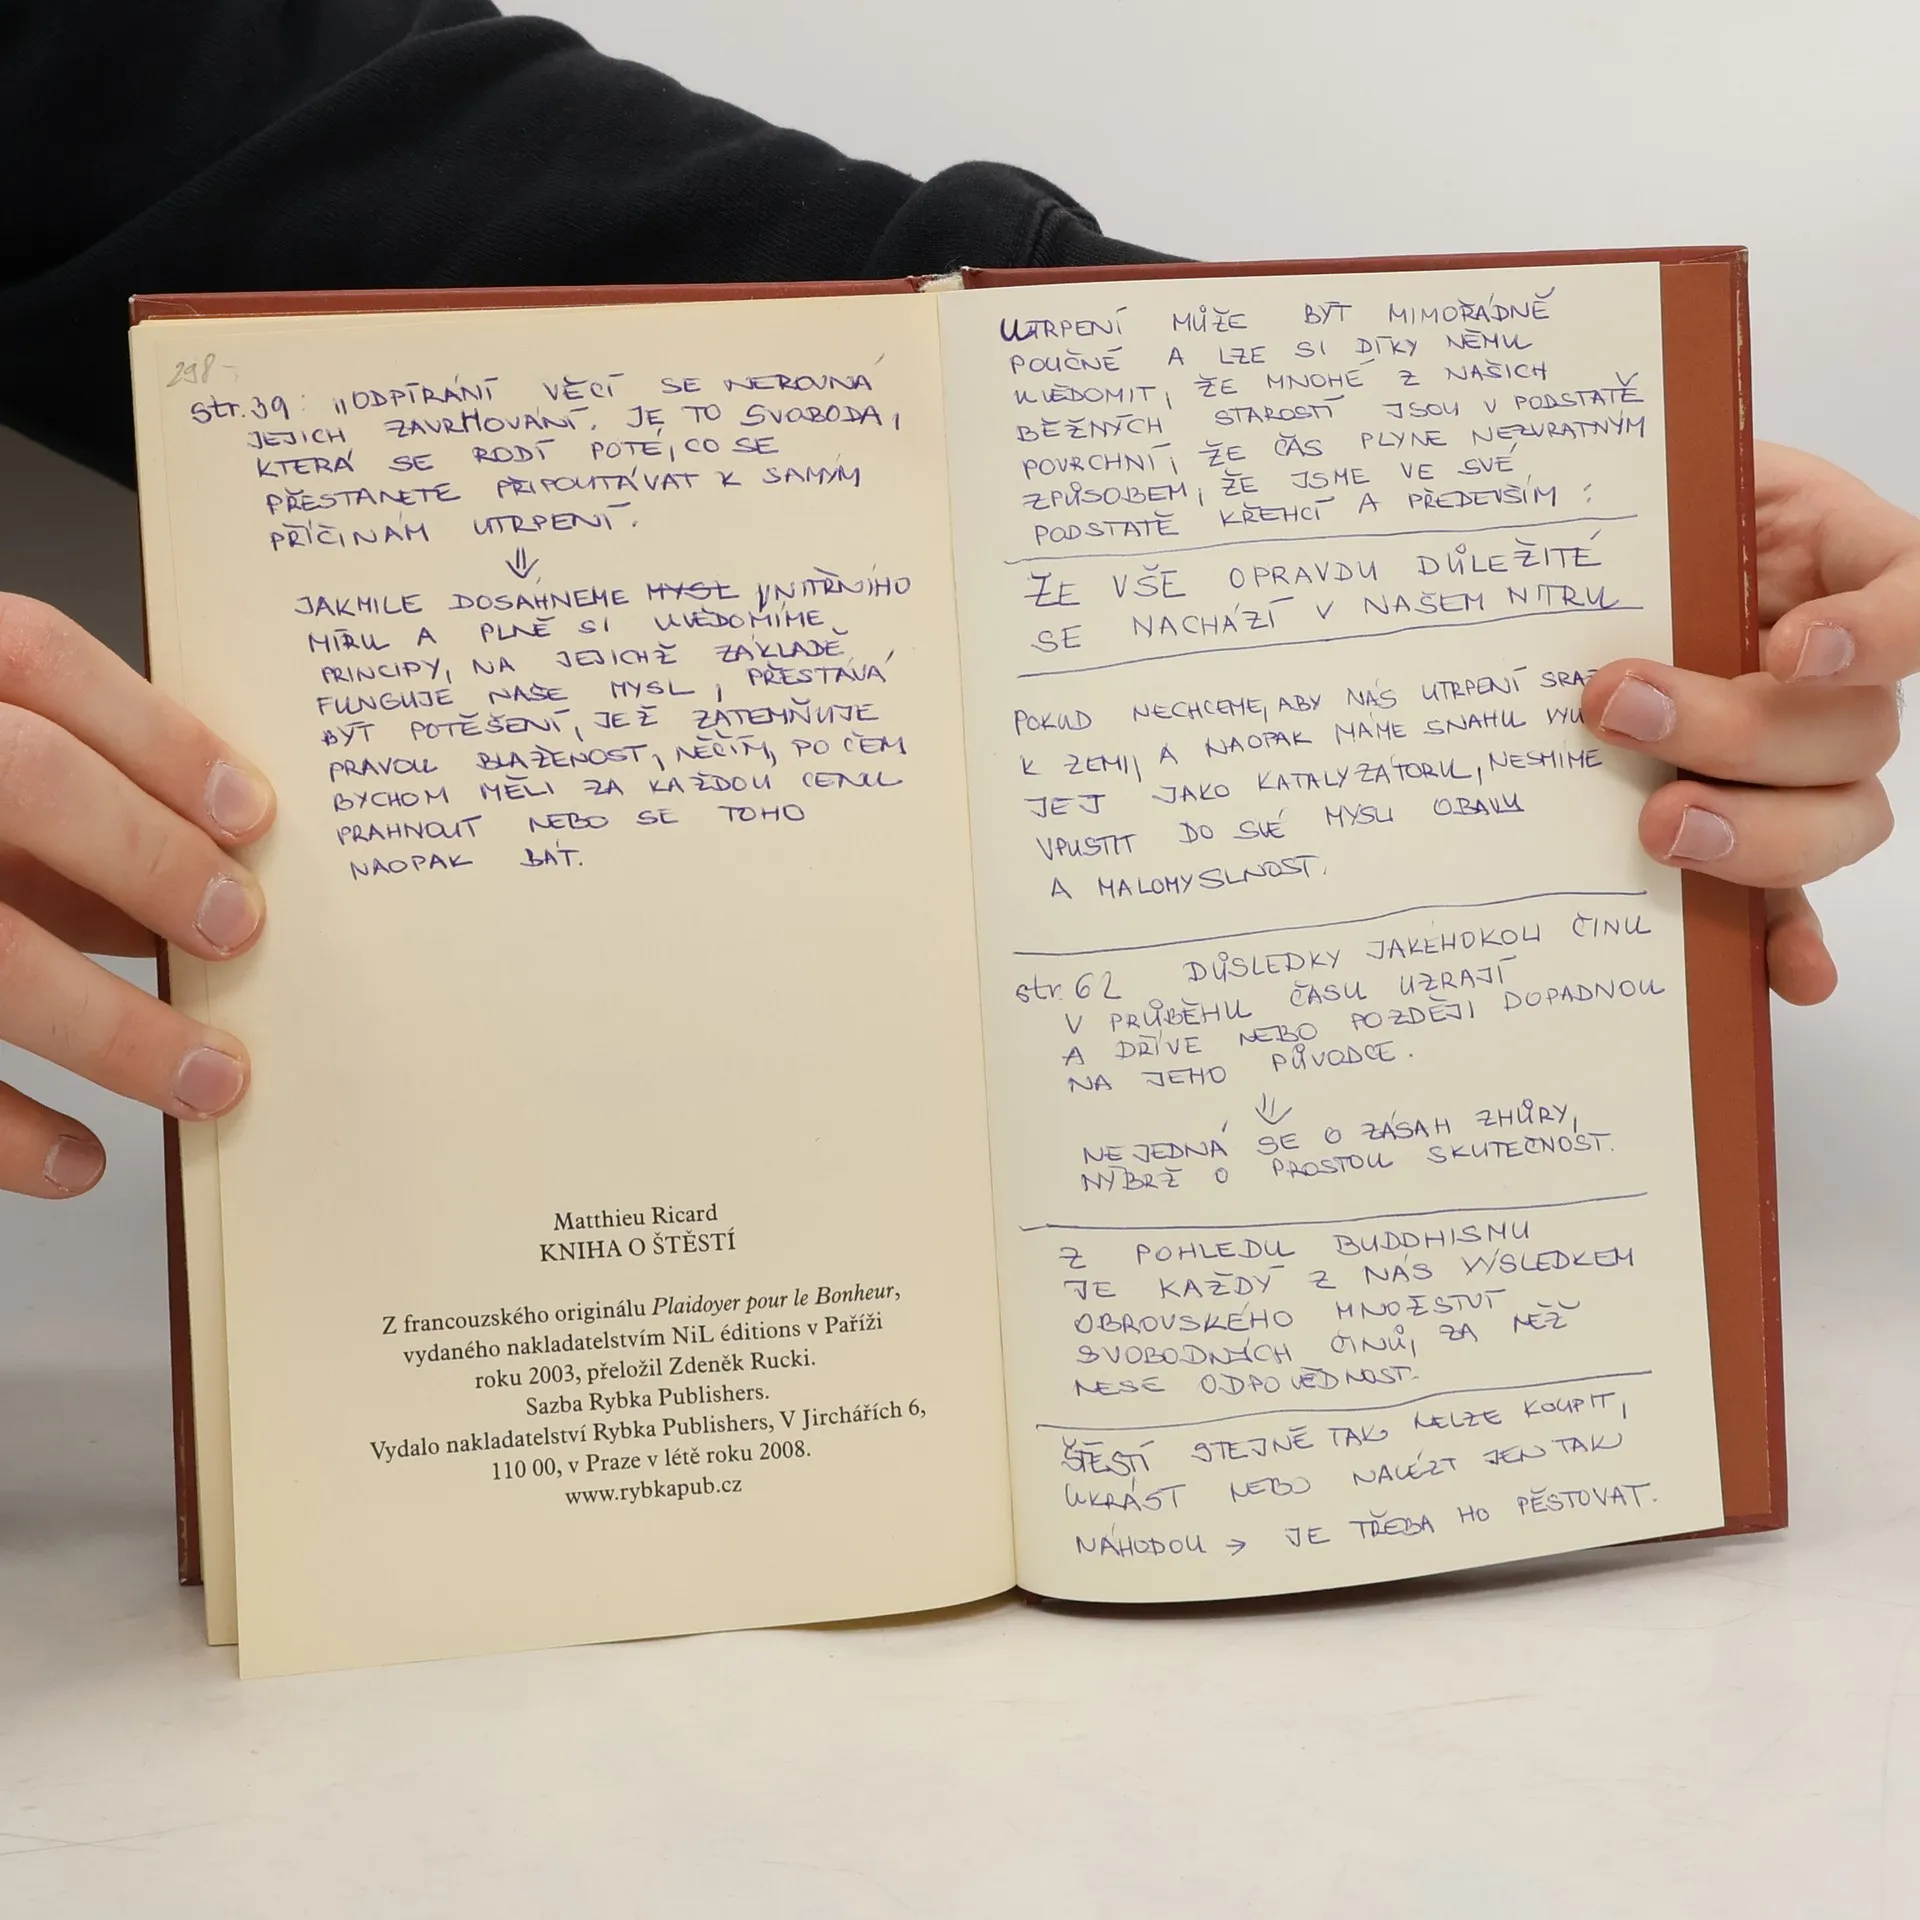 298,-
str. 39: „ODPÍRÁNÍ VĚCÍ SE NEROVNÁ
JEJICH ZAVRHOVÁNÍ. JE TO SVOBODA,
KTERÁ SE RODÍ POTÉ, CO SE
PŘESTANETE PŘIPOUTÁVAT K SAMÝM
PŘÍČINÁM UTRPENÍ.
⇓
JAKMILE DOSÁHNEME MYSL VNITŘNÍHO
MÍRU A PLNĚ SI UVĚDOMÍME
PRINCIPY, NA JEJICHŽ ZÁKLADĚ
FUNGUJE NAŠE MYSL, PŘESTÁVÁ
BÝT POTĚŠENÍ, JEŽ ZATEMŇUJE
PRAVOU BLAŽENOST, NĚČÍM, PO ČEM
BYCHOM MĚLI ZA KAŽDOU CENU
PRAHNOUT NEBO SE TOHO
NAOPAK BÁT.
Matthieu Ricard
KNIHA O ŠTĚSTÍ
Z francouzského originálu Plaidoyer pour le Bonheur,
vydaného nakladatelstvím NiL éditions v Paříži
roku 2003, přeložil Zdeněk Rucki.
Sazba Rybka Publishers.
Vydalo nakladatelství Rybka Publishers, V Jirchářích 6,
110 00, v Praze v létě roku 2008.
www.rybkapub.cz
UTRPENÍ MŮŽE BÝT MIMOŘÁDNĚ
POUČNÉ A LZE SI DÍKY NĚMU
UVĚDOMIT, ŽE MNOHÉ Z NAŠICH
BĚŽNÝCH STAROSTÍ JSOU V PODSTATĚ
POVRCHNÍ, ŽE ČAS PLYNE NEZVRATNÝM
ZPŮSOBEM, ŽE JSME VE SVÉ
PODSTATĚ KŘEHCÍ A PŘEDEVŠÍM:
ŽE VŠE OPRAVDU DŮLEŽITÉ
SE NACHÁZÍ V NAŠEM NITRU
POKUD NECHCEME, ABY NÁS UTRPENÍ
K ZEMI, A NAOPAK MÁME SNAHU
JEJ JAKO KATALYZÁTORU, NESMÍME
VPUSTIT DO SVÉ MYSLI OBAVU
A MALOMYSLNOST.
str. 62 DŮSLEDKY JAKÉHOKOLI ČINU
V PRŮBĚHU ČASU UZRAJÍ
A DŘÍVE NEBO POZDĚJI DOPADNOU
NA JEHO PŮVODCE.
⇓
NEJEDNÁ SE O ZÁSAH ZHŮRY,
NÝBRŽ O PROSTOU SKUTEČNOST.
Z POHLEDU BUDDHISMU
JE KAŽDÝ Z NÁS VÝSLEDKEM
OBROVSKÉHO MNOŽSTVÍ
SVOBODNÝCH ČINŮ, ZA NĚŽ
NESE ODPOVĚDNOST.
ŠTĚSTÍ STEJNĚ TAK NELZE KOUPIT,
UKRÁST NEBO NALÉZT JEN TAK
NÁHODOU → JE TŘEBA HO PĚSTOVAT.